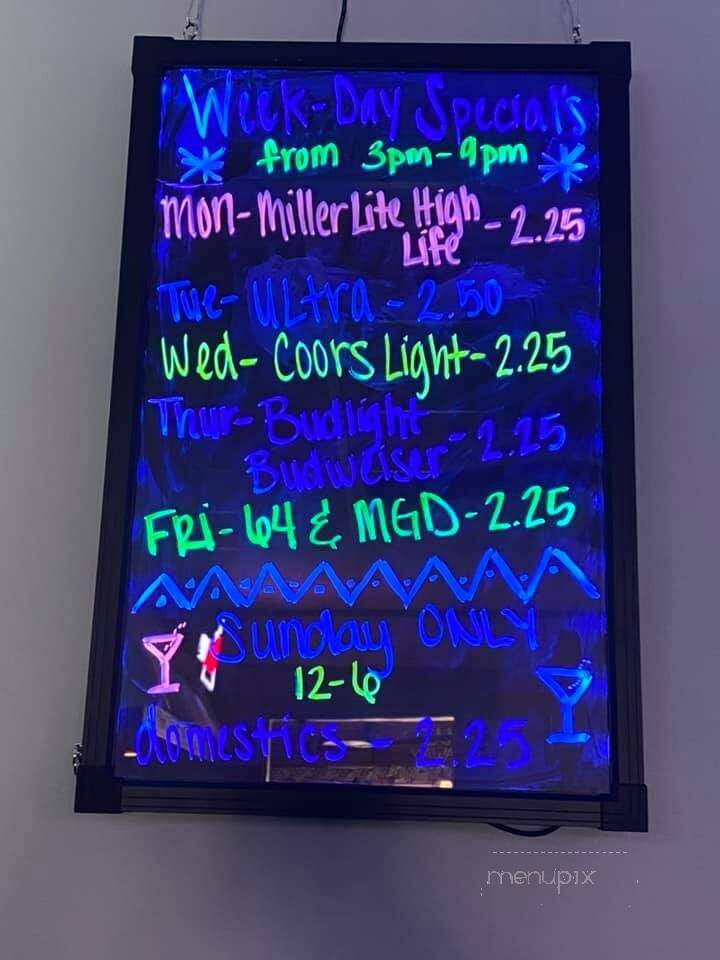 Week-Day Special's
from 3pm-9pm
Mon-Miller Lite High
Life - 2.25
Tue- ULtra - 2.50
Wed- Coors Light-2.25
Thur- Budlight
Budweiser - 2.25
FRi- 64 & MGD-2.25
Sunday ONLY
12-6
domestics - 2.25
menupix